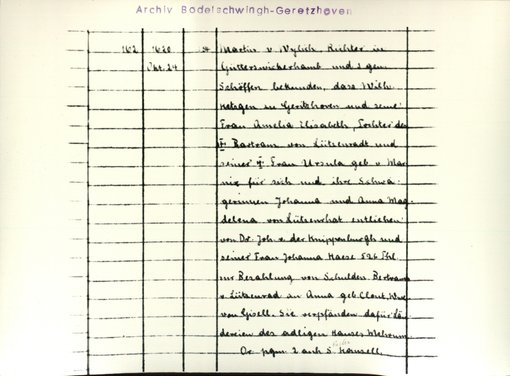 Archiv Bodelschwingh-Geretzhoven
162 1620 Martin v. Wylich Richter in
Okt. 24 Götterswickerhamb und s gen.
Schöffen bekunden, dass Wilh.
Ketzgen zu Geritzhoven und seine
Frau Amelia Elisabeth, Tochter des
Bertram von Lützenradt und
seiner Frau Ursula geb. v. Mar
nix für sich und ihre Schwä-
gerinnen Johanna und Anna Mag
dalena von Lützenrhat entliehen
von Dr. Joh. v. der Knippenburgh und
seiner Frau Johanna Haese 526 Thl.
zur Bezahlung von Schulden. Bertram
v. Lützenrad an Anna geb. Clout, Wwe
von Gisell. Sie verpfänden dafür Län
dereien des adligen Hauses Mehrum.
Or. pgm. 2 anh. S.